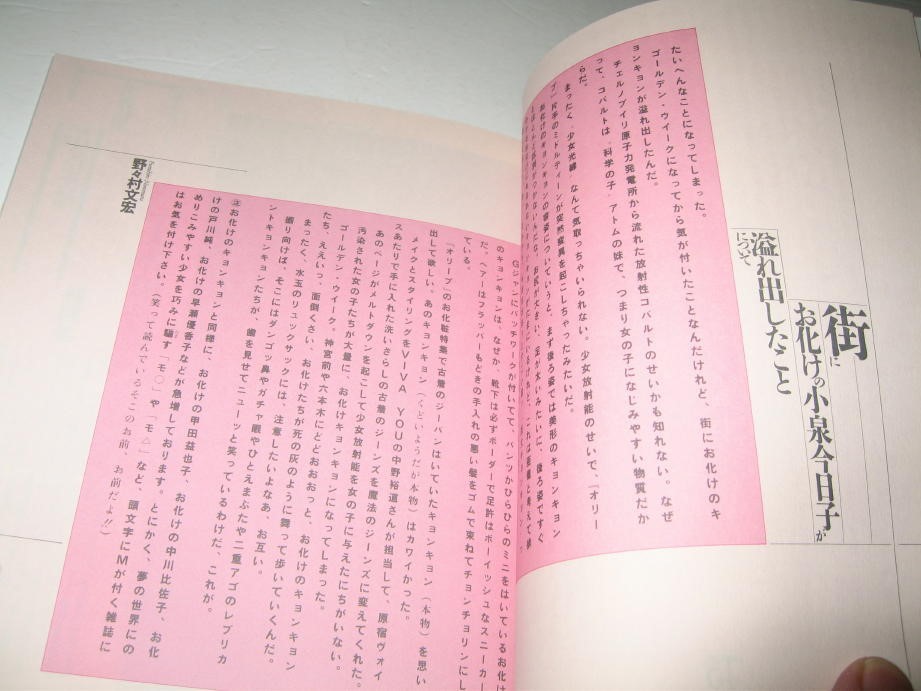 街に
お化けの小泉今日子が
溢れ出したこと
について
たいへんなことになってしまった。
ゴールデン・ウイークになってから気が付いたことなんだけれど、街にお化けのキ
ョンキョンが溢れ出したんだ。
チェルノブイリ原子力発電所から流れた放射性コバルトのせいかも知れない。なぜ
って、コバルトは、科学の子、アトムの妹で、つまり女の子になじみやすい物質だか
らだ。
まったく、少女光線、なんて気取っちゃいられない。少女放射能のせいで、『オリー
ブ』片手のミドルティーンが突然変異を起こしちゃったみたいだ。
お化けのキョンキョンの容姿についていうと、まず後ろ姿では美形のキョンキョン
お尻が大きい、足が太いみたいに、後ろ姿ですぐ
Gジャンにパッチワークが付いてて、パンツかひらひらのミニをはいているお化け
のキョンキョンは、なぜか、靴下は必ずボーダーで足許はボーイッシュなスニーカー
だ。ヘアーはフラッパーもどきの手入れの悪い髪をゴムで束ねてチョンチョリンにし
ている。
『オリーブ』のお化粧特集で古着のジーパンはいていたキョンキョン（本物）を思い
出して欲しい、あのキョンキョン（くどいようだが本物）はカワイかった。
メイクとスタイリングをVIVA YOUの中野裕通さんが担当して、原宿ヴォイ
スあたりで手に入れた洗いざらしの古着のジーンズを魔法のジーンズに変えてくれた。
あのページがメルトダウンを起こして少女放射能を女の子に与えたにちがいない。
汚染された女の子たちが大量に、お化けキョンキョンになってしまった。
ゴールデン・ウイーク。神宮前や六本木にどどおおおっと、お化けのキョンキョン
たち、ええいっ、面倒くさい、お化けたちが死の灰のように舞って歩いていくんだ。
まったく、水玉のリュックサックには、注意したいよなあ、お互い。
振り向けば、そこにはダンゴッ鼻やガチャ眼やひとえまぶたや二重アゴのレプリカ
ントキョンキョンたちが、歯を見せてニューッと笑っているわけだ、これが。
お化けのキョンキョンと同様に、お化けの甲田益也子、お化けの中川比佐子、お化
けの戸川純、お化けの早瀬優香子などが急増しております。とにかく、夢の世界にの
めりこみやすい少女を巧みに騙す「モ〇」や「モ△」など、頭文字にMが付く雑誌に
はお気を付け下さい。（笑って読んでいるそこのお前、お前だよ!!）
野々村文宏